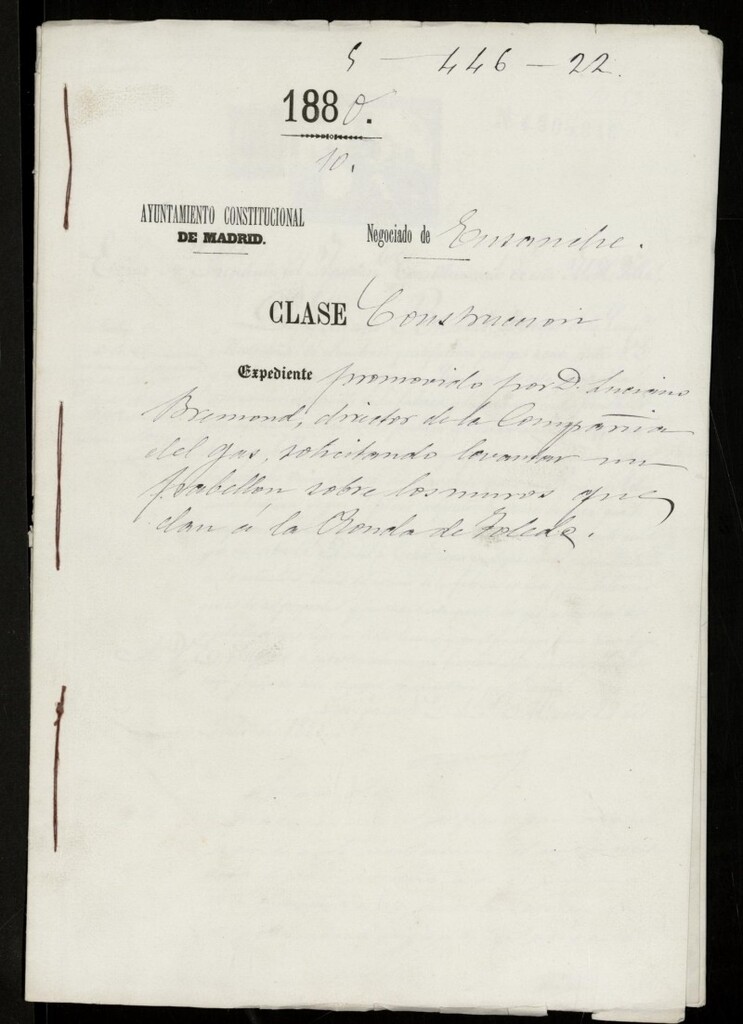 5 - 446 - 22.
1880.
10.
AYUNTAMIENTO CONSTITUCIONAL
DE MADRID.
Negociado de Ensanche.
CLASE Construccion
Expediente promovido por D. Luciano
Bremond, director de la Compañia
del gas, solicitando levantar un
pabellon sobre los muros que
dan á la Ronda de Toledo.